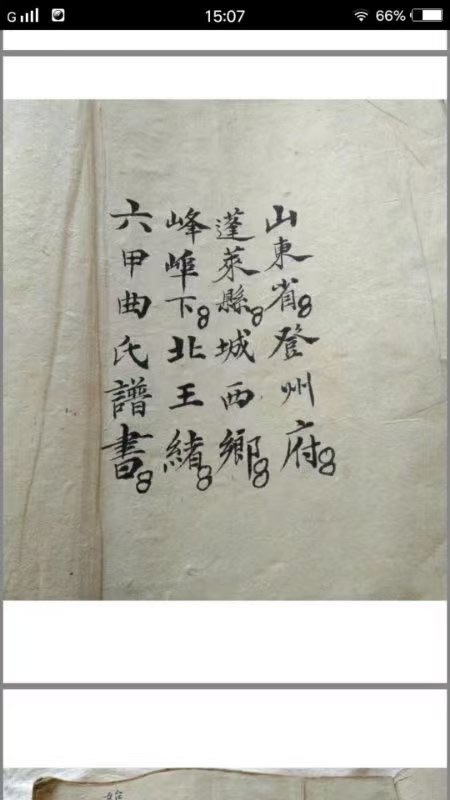 G 15:07 66%
山東省登州府
蓬萊縣城西鄉
峰㟁下北王緒
六甲曲氏譜書